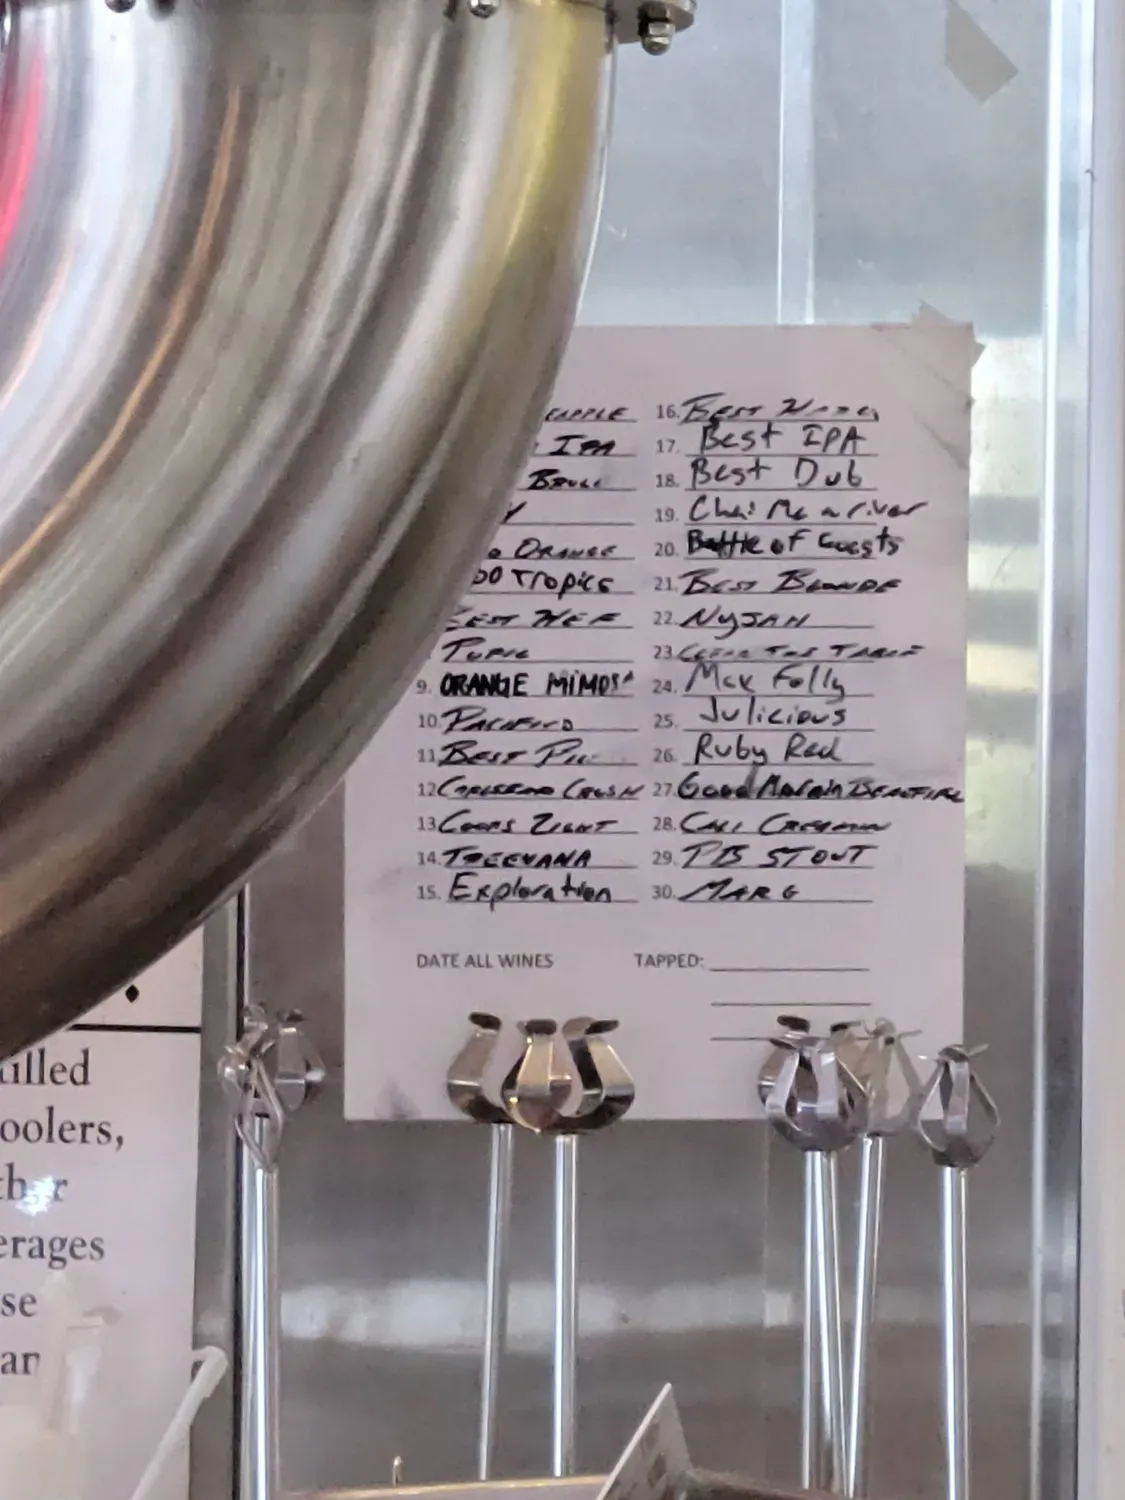 IPA
ORANGE
00 Tropics
BEST HEF
TOPIC
9. ORANGE MIMOSA
10. PACIFICO
11. BEST
12. CRUSH
13. COORS LIGHT
14. TREEVANA
15. Exploration
16. BEST
17. Best IPA
18. Best Dub
19. Chai Me a river
20. Battle of Guests
21. BEST BLONDE
22. NYJAH
23. CLEAR THE TABLE
24. Folly
25. Julicious
26. Ruby Red
27. Good BEAUTIFUL
28. CALI CREAMIN
29. PB STOUT
30. MARG
DATE ALL WINES TAPPED:
illed
oolers,
erages
se
an